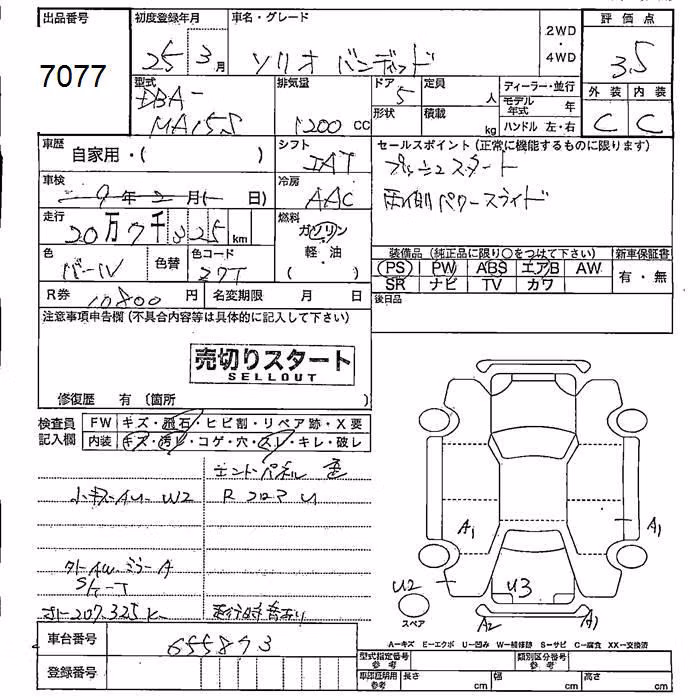 出品番号
7077
初度登録年月
25 3月
車名・グレード
ソリオ バンディット
2WD
・
4WD
評価点
3.5
外装 内装
C C
型式
DBA-
MA15S
排気量
1200 cc
ドア
5
形状
定員
人
積載
kg
ディーラー・並行
モデル年式 年
ハンドル 左・右
車歴
自家用・( )
シフト
IAT
セールスポイント (正常に機能するものに限ります)
プッシュスタート
両側パワースライド
車検
9年2月( 日)
冷房
AAC
走行
20万7千325km
燃料
ガソリン
軽・油
( )
色
パール
色替
色コード
Z7T
装備品 (純正品に限り○をつけて下さい)
PS PW ABS エアB AW
SR ナビ TV カワ
新車保証書
有・無
後日品
R券 10800円
名変期限 月 日
注意事項申告欄 (不具合内容等は具体的に記入して下さい)
売切りスタート
SELLOUT
修復歴 有 〔箇所 〕
検査員
記入欄
FW キズ・飛石・ヒビ割・リペア跡・X要
内装 キズ・汚レ・コゲ・穴・スレ・キレ・破レ
エンドパネル 歪
小キズAU W2
R フロア U
外AWミラーA
シート
207,325K
車台番号
655873
登録番号
A1
A1
U2
U3
スペア
A2
A1
A-キズ E-エクボ U-凹み W-補修跡 S-サビ C-腐食 XX-交換済
型式指定番号
参考
類別区分番号
参考
取扱証明用
参考
長さ cm
幅 cm
高さ cm